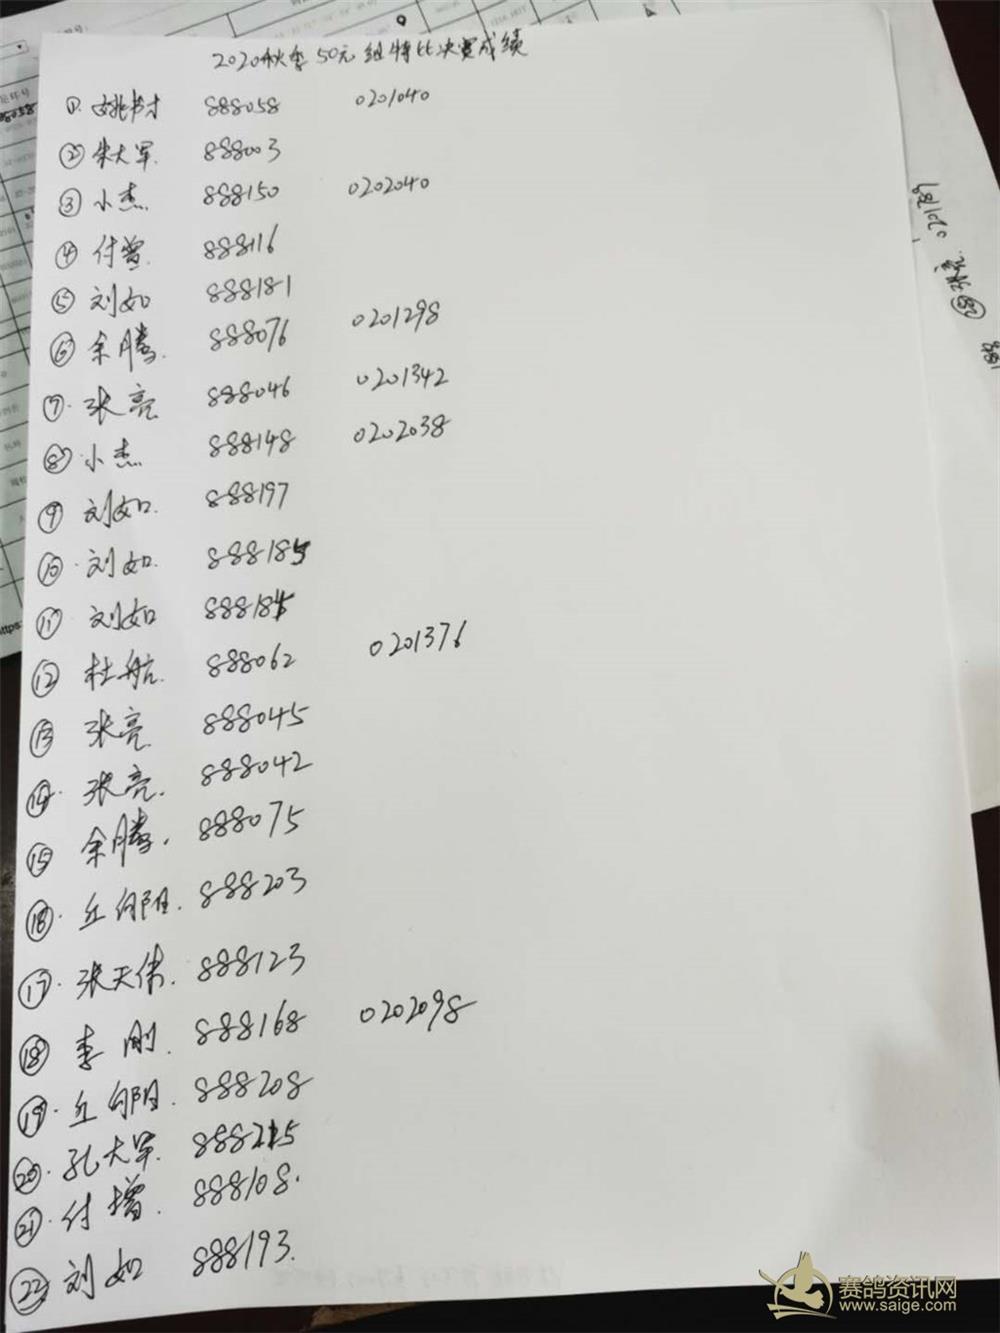 2020秋季50元组特比决赛成绩
①. 姚书才 888058 0201040
② 朱大军. 888003
③ 小杰. 888150 0202040
④ 付曾. 888116
⑤ 刘如 888181
⑥ 余腾. 888076 0201298
⑦. 张亮 888046 0201342
⑧. 小杰 888148 0202038
⑨ 刘如. 888197
⑩. 刘如. 888185
⑪. 刘如 88818
⑫ 杜航. 888062 0201376
⑬ 张亮. 888045
⑭. 张亮. 888042
⑮ 余腾. 888075
⑱. 丘向阳. 888203
⑰. 张天伟. 888123
⑱ 李刚. 888168 0202098
⑲. 丘向阳. 888208
⑳. 孔大军. 888215
㉑. 付增. 888108.
㉒ 刘如 888193.
赛鸽资讯网
www.saige.com